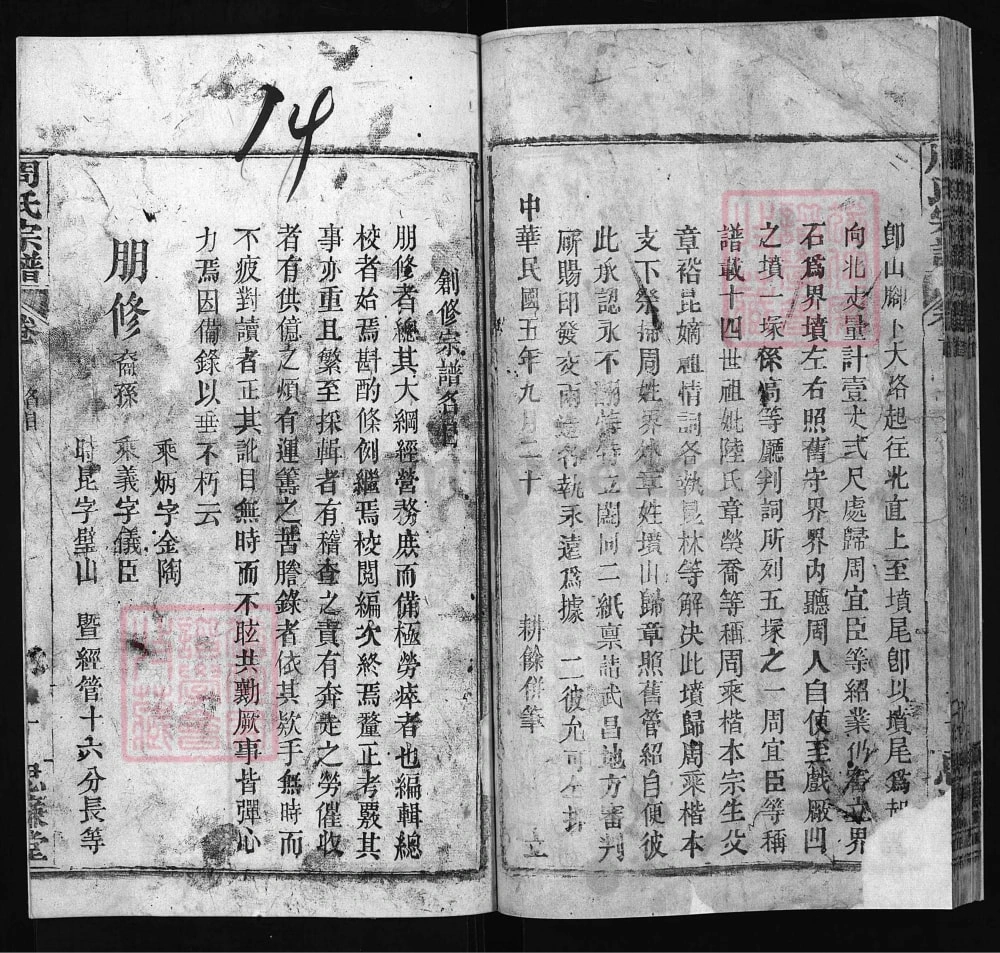 卽山腳卜大路起往北直上至墳尾卽以墳尾爲
向北丈量計壹丈弍尺處歸周宜臣等紹業仍審立界
石爲界墳左右照舊守界界內聽周人自便至戲厰凹
之墳一塚係高等廳判詞所列五塚之一周宜臣等稱
譜載十四世祖妣陸氏章榮喬等稱周乘楷本宗生父
章裕昆嫡祖情詞各執昆林等解決此墳歸周乘楷本
支下祭掃周姓界外章姓墳山歸章照舊管紹自便彼
此承認永不翻悔特立闔同二紙禀請武昌地方審判
廝賜印發交兩造各執永遠爲據 二彼允可
中華民國五年九月二十 耕餘併筆 立
14
周氏宗譜
創修宗譜名目
朋修者總其大綱經營務底而備極勞瘁者也編輯總
校者始焉斟酌條例繼焉校閱編次終焉釐正考覈其
事亦重且繁至採輯者有稽查之責有奔走之勞催收
者有供億之煩有運籌之苦謄錄者依其欵手無時而
不疲對讀者正其訛目無時而不眩共勷厥事皆殫心
力焉因備錄以垂不朽云
朋修 裔孫 乘炳字金陶
乘義字儀臣
時昆字璧山 暨經管十六分長等